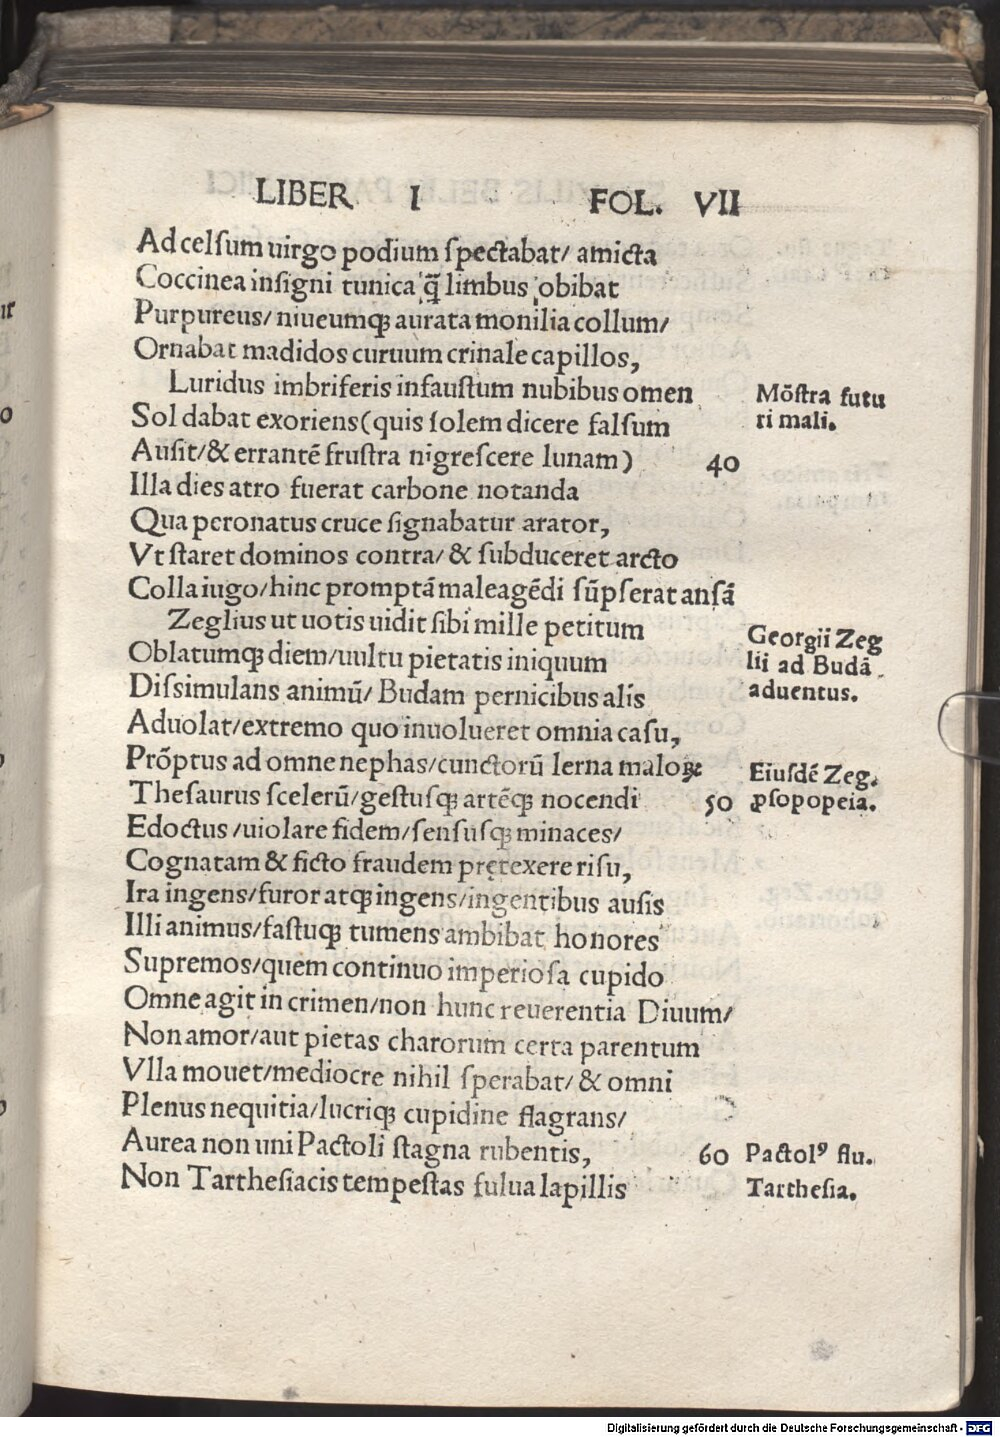 LIBER I FOL. VII
Ad celſum uirgo podium ſpectabat/ amicta
Coccinea inſigni tunica q̄ limbus obibat
Purpureus/ niueumqꝫ aurata monilia collum/
Ornabat madidos curuum crinale capillos,
Luridus imbriferis infauſtum nubibus omen
Mōſtra futu
Sol dabat exoriens (quis ſolem dicere falſum
ri mali.
Auſit/ & errantē fruſtra nigreſcere lunam) 40
Illa dies atro fuerat carbone notanda
Qua peronatus cruce ſignabatur arator,
Vt ſtaret dominos contra/ & ſubduceret arcto
Colla iugo/ hinc promptā maleagēdi ſūpſerat anſā
Zeglius ut uotis uidit ſibi mille petitum
Georgii Zeg
Oblatumqꝫ diem/ uultu pietatis iniquum
lii ad Budā
Diſsimulans animū/ Budam pernicibus alis
aduentus.
Aduolat/ extremo quo inuolueret omnia caſu,
Prōptus ad omne nephas/ cunctorū lerna maloꝝ
Eiuſdē Zeg.
Theſaurus ſcelerū/ geſtuſqꝫ artēqꝫ nocendi 50
ꝓſopopeia.
Edoctus/ uiolare fidem/ ſenſuſqꝫ minaces/
Cognatam & ficto fraudem prętexere riſu,
Ira ingens/ furor atqꝫ ingens/ ingentibus auſis
Illi animus/ faſtuqꝫ tumens ambibat honores
Supremos/ quem continuo imperioſa cupido
Omne agit in crimen/ non hunc reuerentia Diuum/
Non amor/ aut pietas charorum certa parentum
Vlla mouet/ mediocre nihil ſperabat/ & omni
Plenus nequitia/ lucriqꝫ cupidine flagrans/
Aurea non uni Pactoli ſtagna rubentis, 60
Pactolꝰ flu.
Non Tartheſiacis tempeſtas fulua lapillis
Tartheſia.
Digitalisierung gefördert durch die Deutsche Forschungsgemeinschaft - DFG